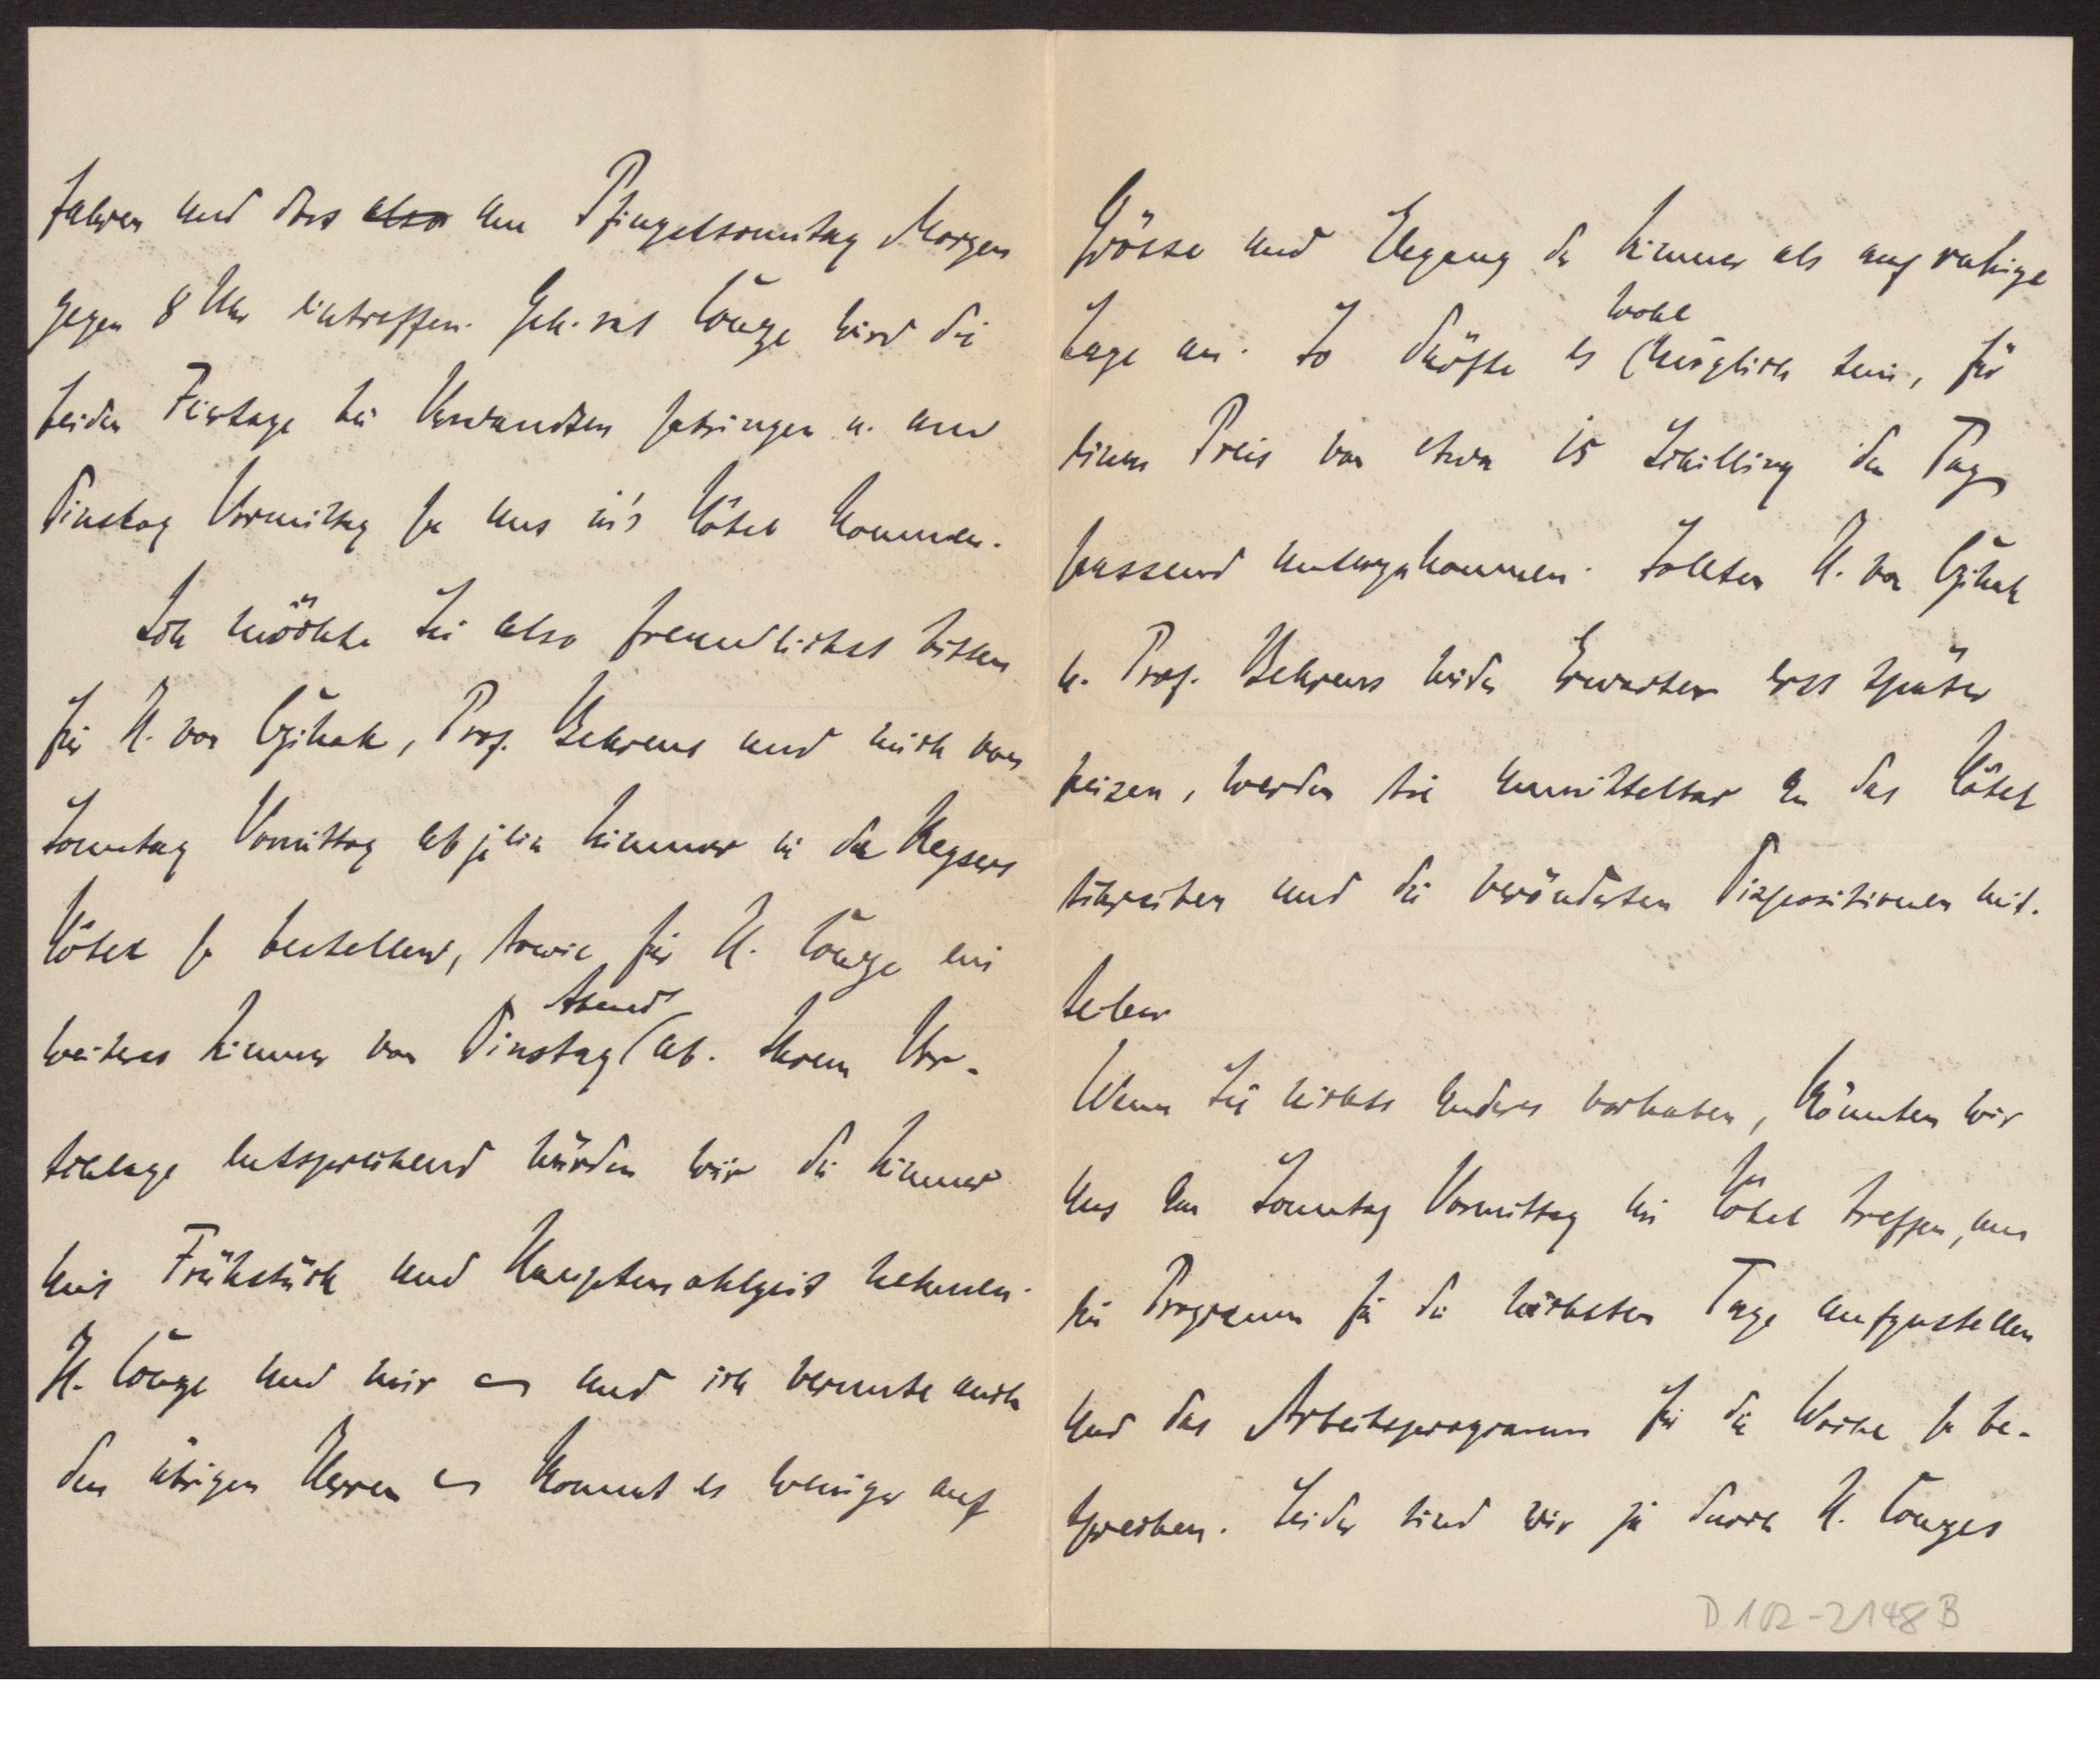 fahren und dort also am Pfingstsonntag Morgen
gegen 8 Uhr eintreffen. Geh. rat Conze wird die
beiden Feiertage bei Verwandten zubringen u. am
Dinstag Vormittag zu uns in's Hôtel kommen.
Ich möchte Sie also freundlichst bitten
für H. von Czihak, Prof. Behrens und mich von
Sonntag Vormittag ab je ein Zimmer in den Keysers
Hôtel zu bestellen, sowie für H. Conze ein
weiteres Zimmer von Dinstag Abend ab. Ihrem Vor-
schlage entsprechend würden wir die Zimmer
mit Frühstück und Hauptmahlzeit nehmen.
H. Conze und mir – und ich vermute auch
den übrigen Herren – kommt es weniger auf
Grösse und Eleganz der Zimmer als auf ruhige
Lage an. So dürfte es wohl möglich sein, für
einen Preis von etwa 15 Schilling den Tag
passend unterzukommen. Sollten H. von Czihak
u. Prof. Behrens wider Erwarten erst später
reisen, werden sie unmittelbar an das Hôtel
schreiben und die veränderten Dispositionen mit-
teilen
Wenn Sie nichts anderes vorhaben, könnten wir
uns am Sonntag Vormittag im Hôtel treffen, um
ein Programm für die nächsten Tage aufzustellen
und das Arbeitsprogramm für die Woche zu be-
sprechen. Leider sind wir ja durch H. Conzes
D 102-2148 B